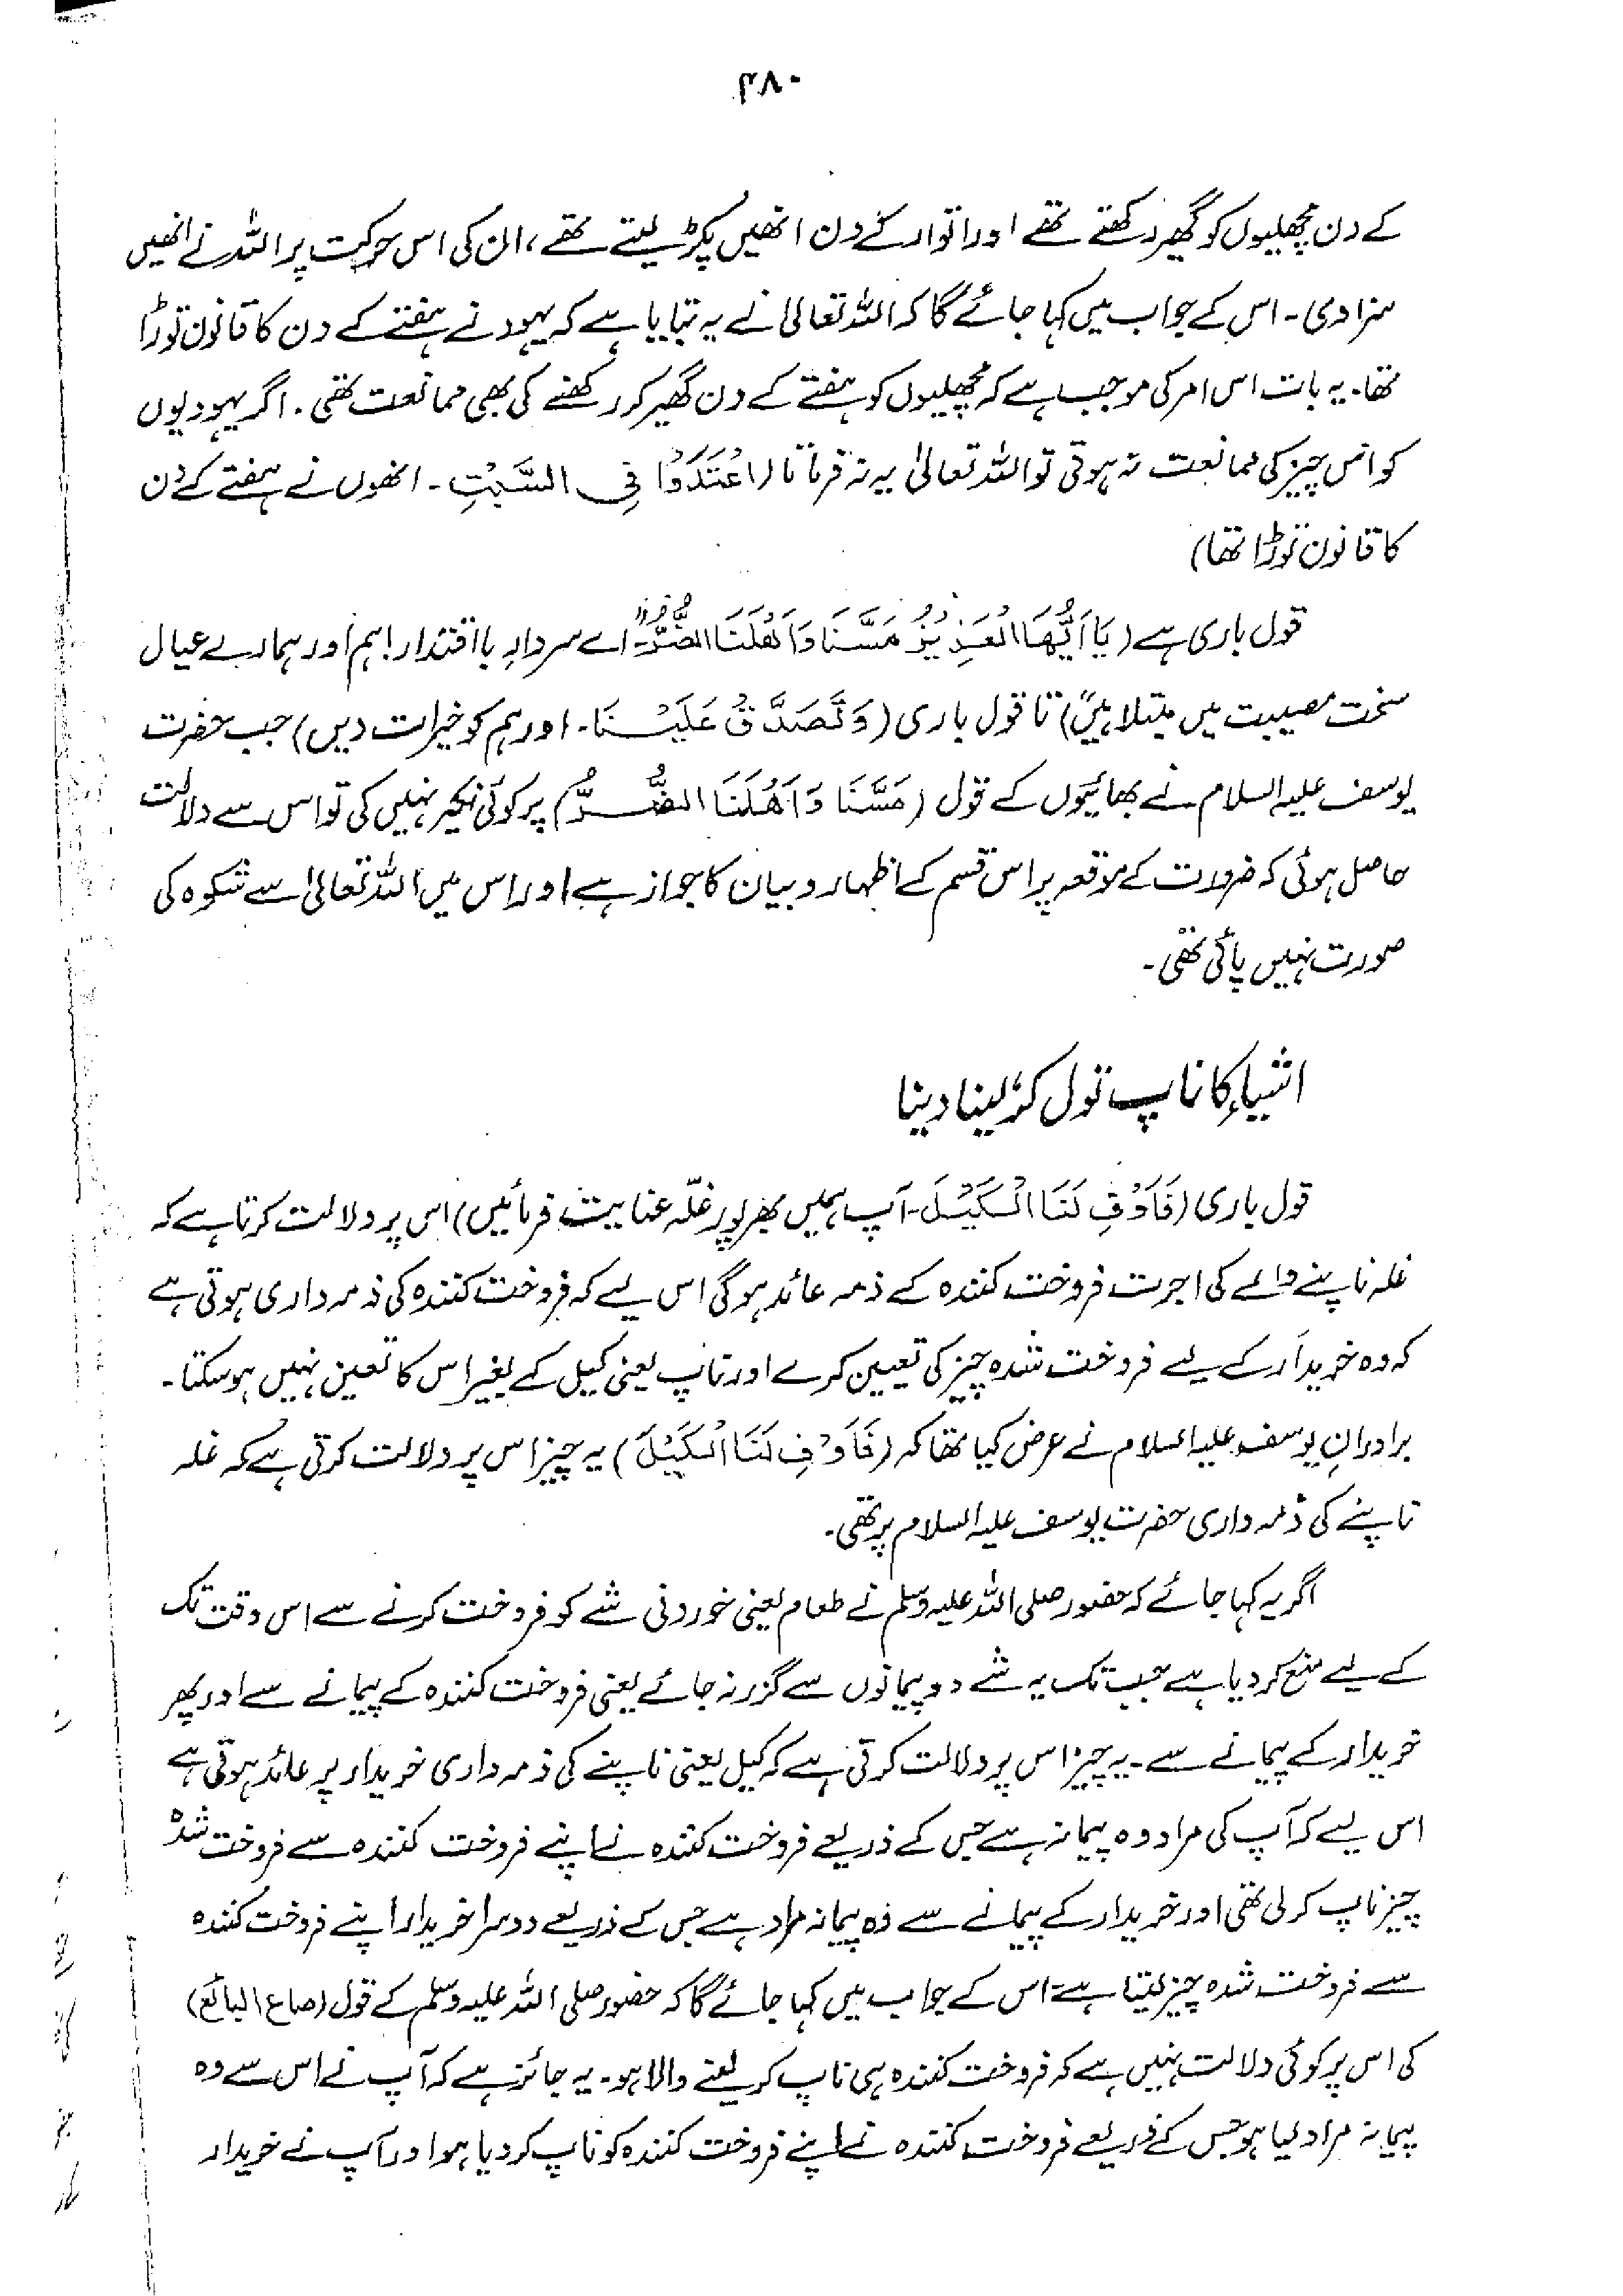 ۳۸۰
کے دن مچھلیوں کو گھیر رکھتے تھے اور اتوار کے دن انھیں پکڑ لیتے تھے، ان کی اس حرکت پر اللہ نے انھیں
سزا دی۔ اس کے جواب میں کہا جائے گا کہ اللہ تعالیٰ نے یہ بتایا ہے کہ یہود نے ہفتے کے دن کا قانون توڑا
تھا۔ یہ بات اس امر کی موجب ہے کہ مچھلیوں کو ہفتے کے دن گھیر کر رکھنے کی بھی ممانعت تھی۔ اگر یہودیوں
کو اس چیز کی ممانعت نہ ہوتی تو اللہ تعالیٰ یہ نہ فرماتا (اعْتَدَوْا فِی السَّبْتِ۔ انھوں نے ہفتے کے دن
کا قانون توڑا تھا)
قول باری ہے (یَا اَیُّھَا الْعَزِیْزُ مَسَّنَا وَاَھْلَنَا الضُّرُّ۔ اے سردارِ با اقتدار! ہم اور ہمارے عیال
سخت مصیبت میں مبتلا ہیں) تا قول باری (وَتَصَدَّقْ عَلَیْنَا۔ اور ہم کو خیرات دیں) جب حضرت
یوسف علیہ السلام نے بھائیوں کے قول (مَسَّنَا وَاَھْلَنَا الضُّرُّ) پر کوئی نکیر نہیں کی تو اس سے دلالت
حاصل ہوئی کہ ضرورت کے موقعہ پر اس قسم کے اظہار و بیان کا جواز ہے اور اس میں اللہ تعالیٰ سے شکوہ کی
صورت نہیں پائی تھی۔
اشیاء کا ناپ تول کر لینا دینا
قول باری (فَاَوْفِ لَنَا الْکَیْلَ۔ آپ ہمیں بھرپور غلّہ عنایت فرمائیں) اس پر دلالت کرتا ہے کہ
غلہ ناپنے والے کی اجرت فروخت کنندہ کے ذمہ عائد ہوگی اس لیے کہ فروخت کنندہ کی ذمہ داری ہوتی ہے
کہ وہ خریدار کے لیے فروخت شدہ چیز کی تعیین کرے اور ناپ یعنی کیل کے بغیر اس کا تعین نہیں ہو سکتا۔
برادرانِ یوسف علیہ السلام نے عرض کیا تھا کہ (فَاَوْفِ لَنَا الْکَیْلَ) یہ چیز اس پر دلالت کرتی ہے کہ غلہ
ناپنے کی ذمہ داری حضرت یوسف علیہ السلام پر تھی۔
اگر یہ کہا جائے کہ حضور صلی اللہ علیہ وسلم نے طعام یعنی خوردنی شے کو فروخت کرنے سے اس وقت تک
کے لیے منع کر دیا ہے جب تک یہ شے دو پیمانوں سے گزر نہ جائے یعنی فروخت کنندہ کے پیمانے سے اور پھر
خریدار کے پیمانے سے۔ یہ چیز اس پر دلالت کرتی ہے کہ کیل یعنی ناپنے کی ذمہ داری خریدار پر عائد ہوتی ہے
اس لیے کہ آپ کی مراد وہ پیمانہ ہے جس کے ذریعے فروخت کنندہ نے اپنے فروخت کنندہ سے فروخت شدہ
چیز ناپ کر لی تھی اور خریدار کے پیمانے سے وہ پیمانہ مراد ہے جس کے ذریعے دوسرا خریدار اپنے فروخت کنندہ
سے فروخت شدہ چیز لیتا ہے۔ اس کے جواب میں کہا جائے گا کہ حضور صلی اللہ علیہ وسلم کے قول (صاع البائع)
کی اس پر کوئی دلالت نہیں ہے کہ فروخت کنندہ ہی ناپ کر لینے والا ہو۔ یہ جائز ہے کہ آپ نے اس سے وہ
پیمانہ مراد لیا ہو جس کے ذریعے فروخت کنندہ نے اپنے فروخت کنندہ کو ناپ کر دیا ہو اور آپ نے خریدار